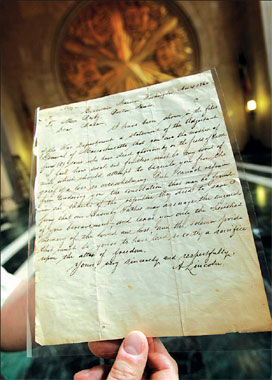 Executive Mansion,
To Mrs Bixby, Boston Mass
Dear Madam, I have been shown in the files
of the War Department a statement of the Adjutant
General of Massachusetts that you are the mother of
five sons who have died gloriously on the field of battle
I feel how weak and fruitless must be any words of
mine which should attempt to beguile you from the
grief of a loss so overwhelming. But I cannot refrain
from tendering to you the consolation that may be found
in the thanks of the Republic they died to save
I pray that our Heavenly Father may assuage the anguish
of your bereavement, and leave you only the cherished
memory of the loved and lost, and the solemn pride
that must be yours to have laid so costly a sacrifice
upon the altar of freedom.
Yours very sincerely and respectfully,
A. Lincoln